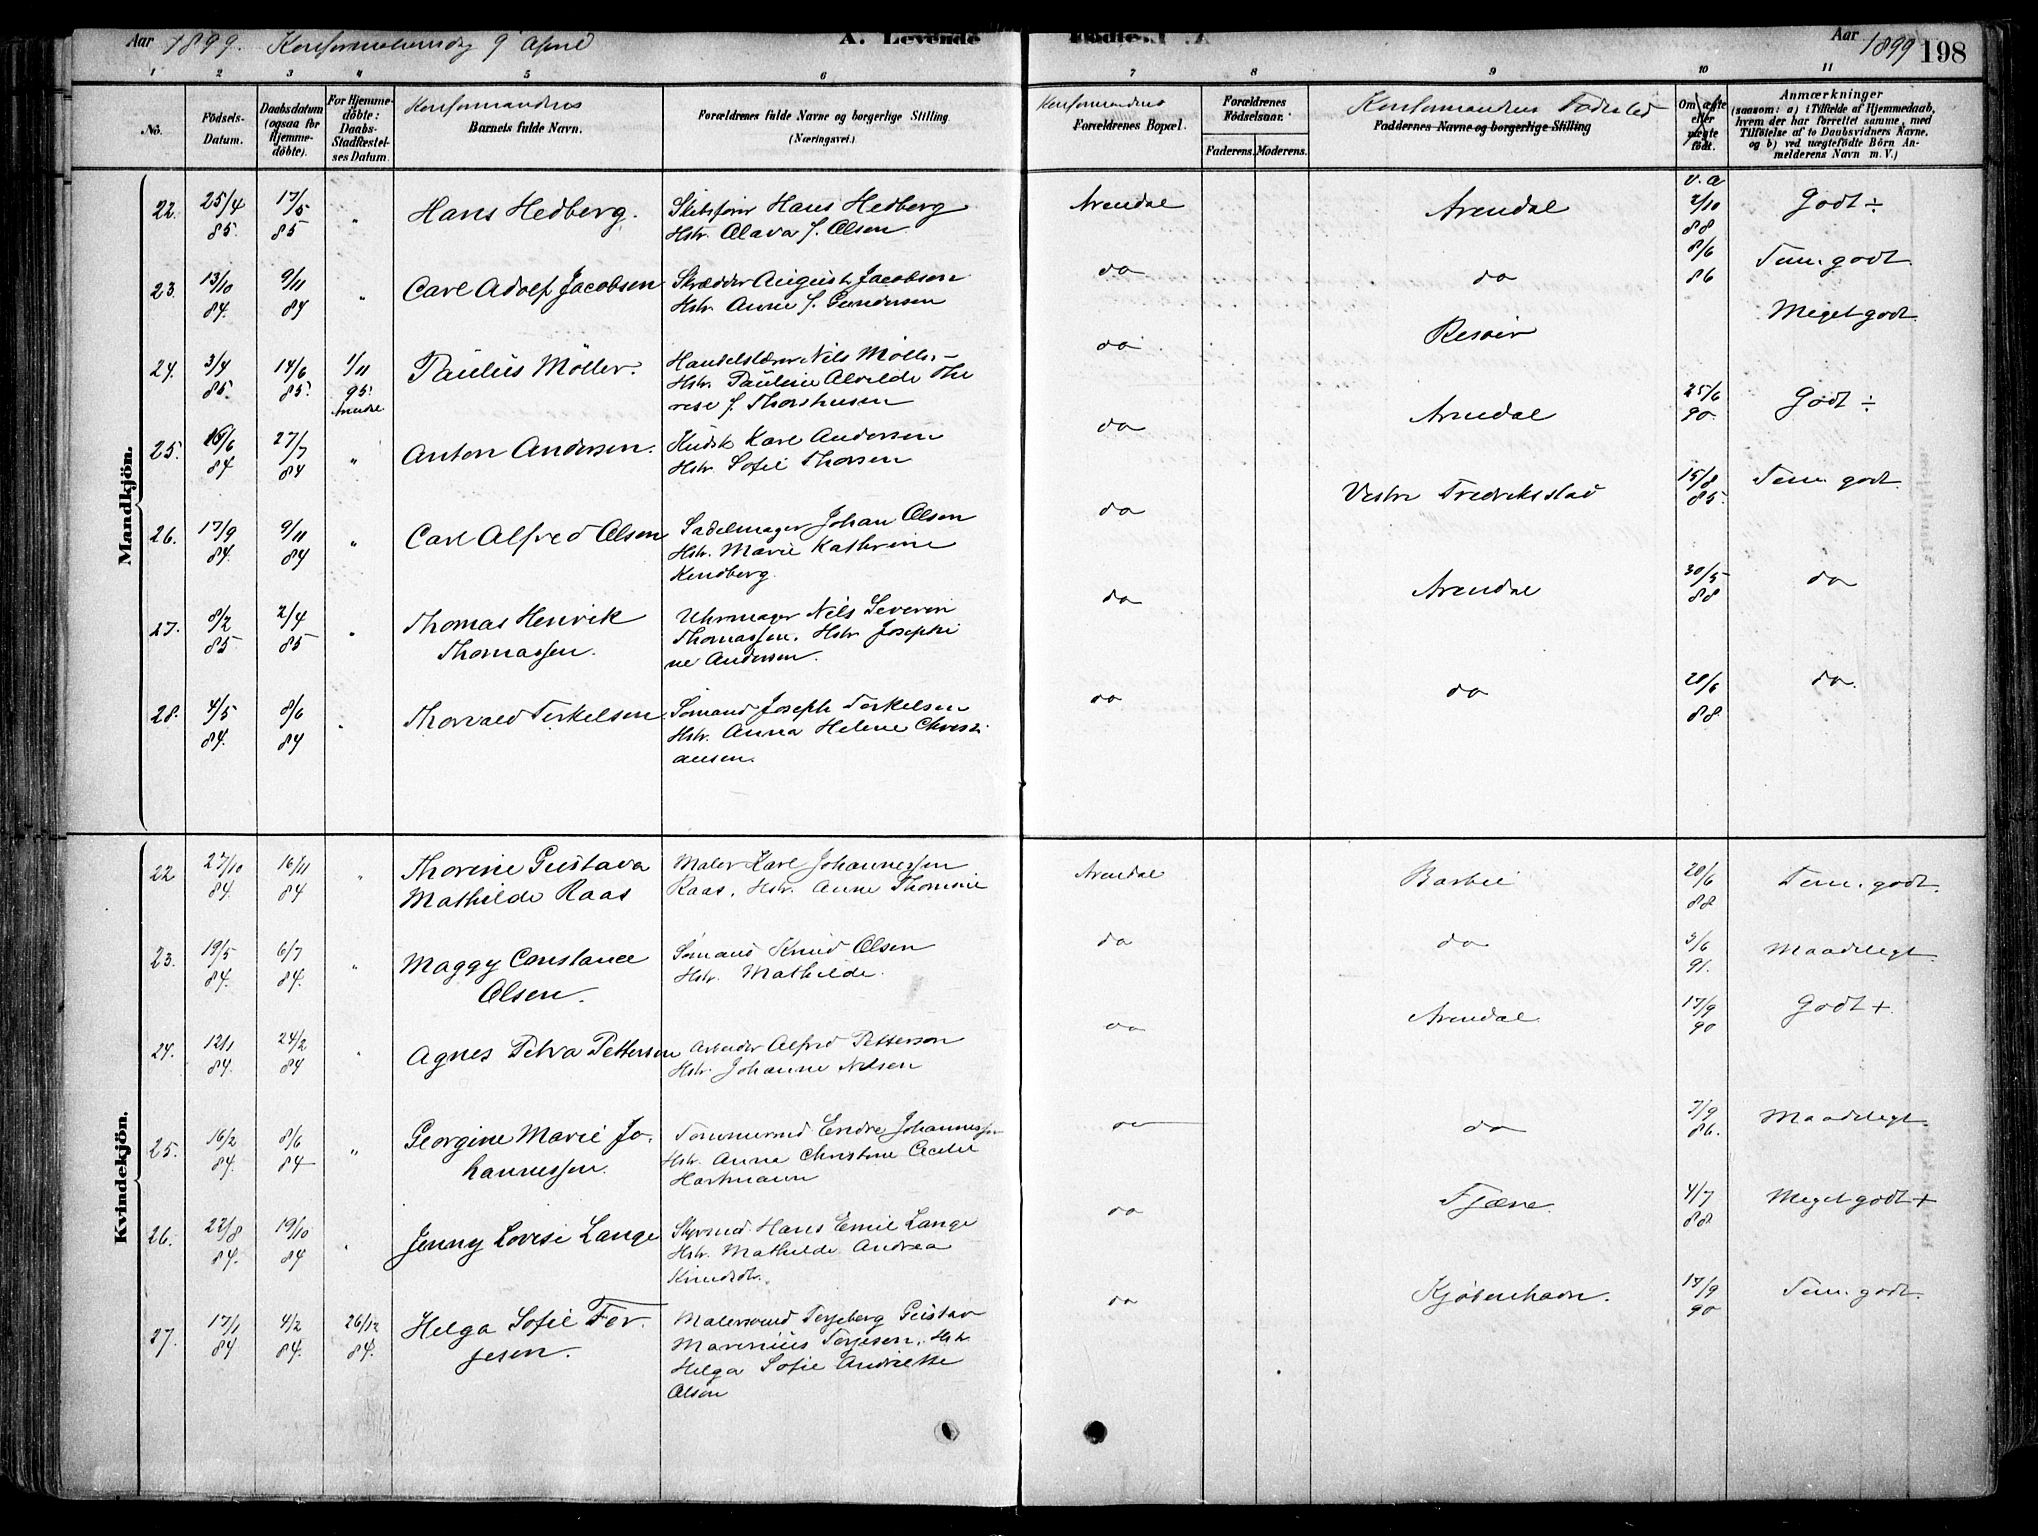 Aar 1899. Konfirmationsdag 9 April
A. Levende Födte.
Aar 1899 198
1 2 3 4 5 6 7 8 9 10 11
No.
Födsels-Datum.
Daabsdatum (ogsaa for Hjemme-döbte).
For Hjemme-döbte: Daabs-Stadfæstel-ses Datum.
Konfirmandens
Barnets fulde Navn.
Forældrenes fulde Navne og borgerlige Stilling
(Næringsvei.)
Konfirmandens
Forældrenes Bopæl.
Forældrenes Födselsaar.
Faderens. Moderens.
Konfirmandens Fødested
Faddernes Navne og borgerlige Stilling
Om ægte eller uægte födt.
Anmærkninger
(saasom: a) i Tilfælde af Hjemmedaab,
hvem der har forrettet samme, med
Tilföielse af to Daabsvidners Navne.
og b) ved uægtefödte Börn An-
melderens Navn m. V.)
Mandkjön.
22. 25/4 85. 17/5 85 " Hans Hedberg. Skibsfører Hans Hedberg
Hstr. Olava f. Olsen.
Arendal Arendal v. a 2/10 88 Godt ÷
23. 13/10 84. 9/11 84 " Carl Adolf Jacobsen Skrædder August Jacobsen
Hstr. Anne f. Gundersen
do do 8/6 86 Tem. godt.
24. 3/4 85. 14/6 85. 1/11 95. Paulus Möller. Handelslærer Nils Möller
Hstr. Pauline Alvilde The
rese f. Thorstensen
do Risør Meget godt.
25. 16/6 84 27/7 84 " Anton Andersen. Kudsk Karl Andersen
Hstr. Sofie Thorsen
do Arendal 25/6 90. Godt ÷
26. 17/9 84. 9/11 84 " Carl Alfred Olsen Sadelmager Johan Olsen
Hstr. Marie Kathrine
do Vestre Fredriksstad 15/8 85. Tem. godt.
27. 8/2 85 2/4 85 " Thomas Henrik
Thomassen. Uhrmager Nils Severin
Thomassen. Hstr Josephi
ne Andersen.
do Arendal 30/5 88 do
28. 4/5 84. 8/6 84 " Thorvald Terkelsen. Sömand Joseph Terkelsen
Hstr. Anna Helene Christi
ansen.
do do 20/6 88. do.
Kvindekjön.
22 27/10 84. 16/11 84 " Thorine Gustava
Mathilde Raas Maler Karl Johannessen
Raas, Hstr. Anne Thomine
Arendal Barbu 20/6 88 Tem. godt.
23. 19/5 84. 6/7 84. " Maggy Constance
Olsen. Sömand Knud Olsen
Hstr. Mathilde.
do do 3/6 91. Maadeligt.
24. 12/1 84. 24/2 84 " Agnes Petra Pettersen Arbeider Alfred Petterson
Hstr. Johanne Nilsen
do Arendal. 17/9 90 Godt +
25. 16/2 84. 8/6 84 " Georgine Marie Jo-
hannessen. Tömmermd Endre Johannessen
Hstr. Anna Christine Cecilie
Hartmann
do do 7/9 86. Maadeligt.
26. 22/8 84. 19/10 84 " Jenny Lovise Lange Styrmd. Hans Emil Lange
Hstr. Mathilde Andrea
Knudsdtr.
do Fjære. 4/7 88. Meget godt +
27. 17/1 84 4/2 84. 26/12 84. Helga Sofie Ter-
jesen. Malersvend Terjeberg Gustav
Marenius Terjesen. Hstr
Helga Sofie Andriette
Olsen
do Kjøbenhavn. 17/9 90 Tem. godt.